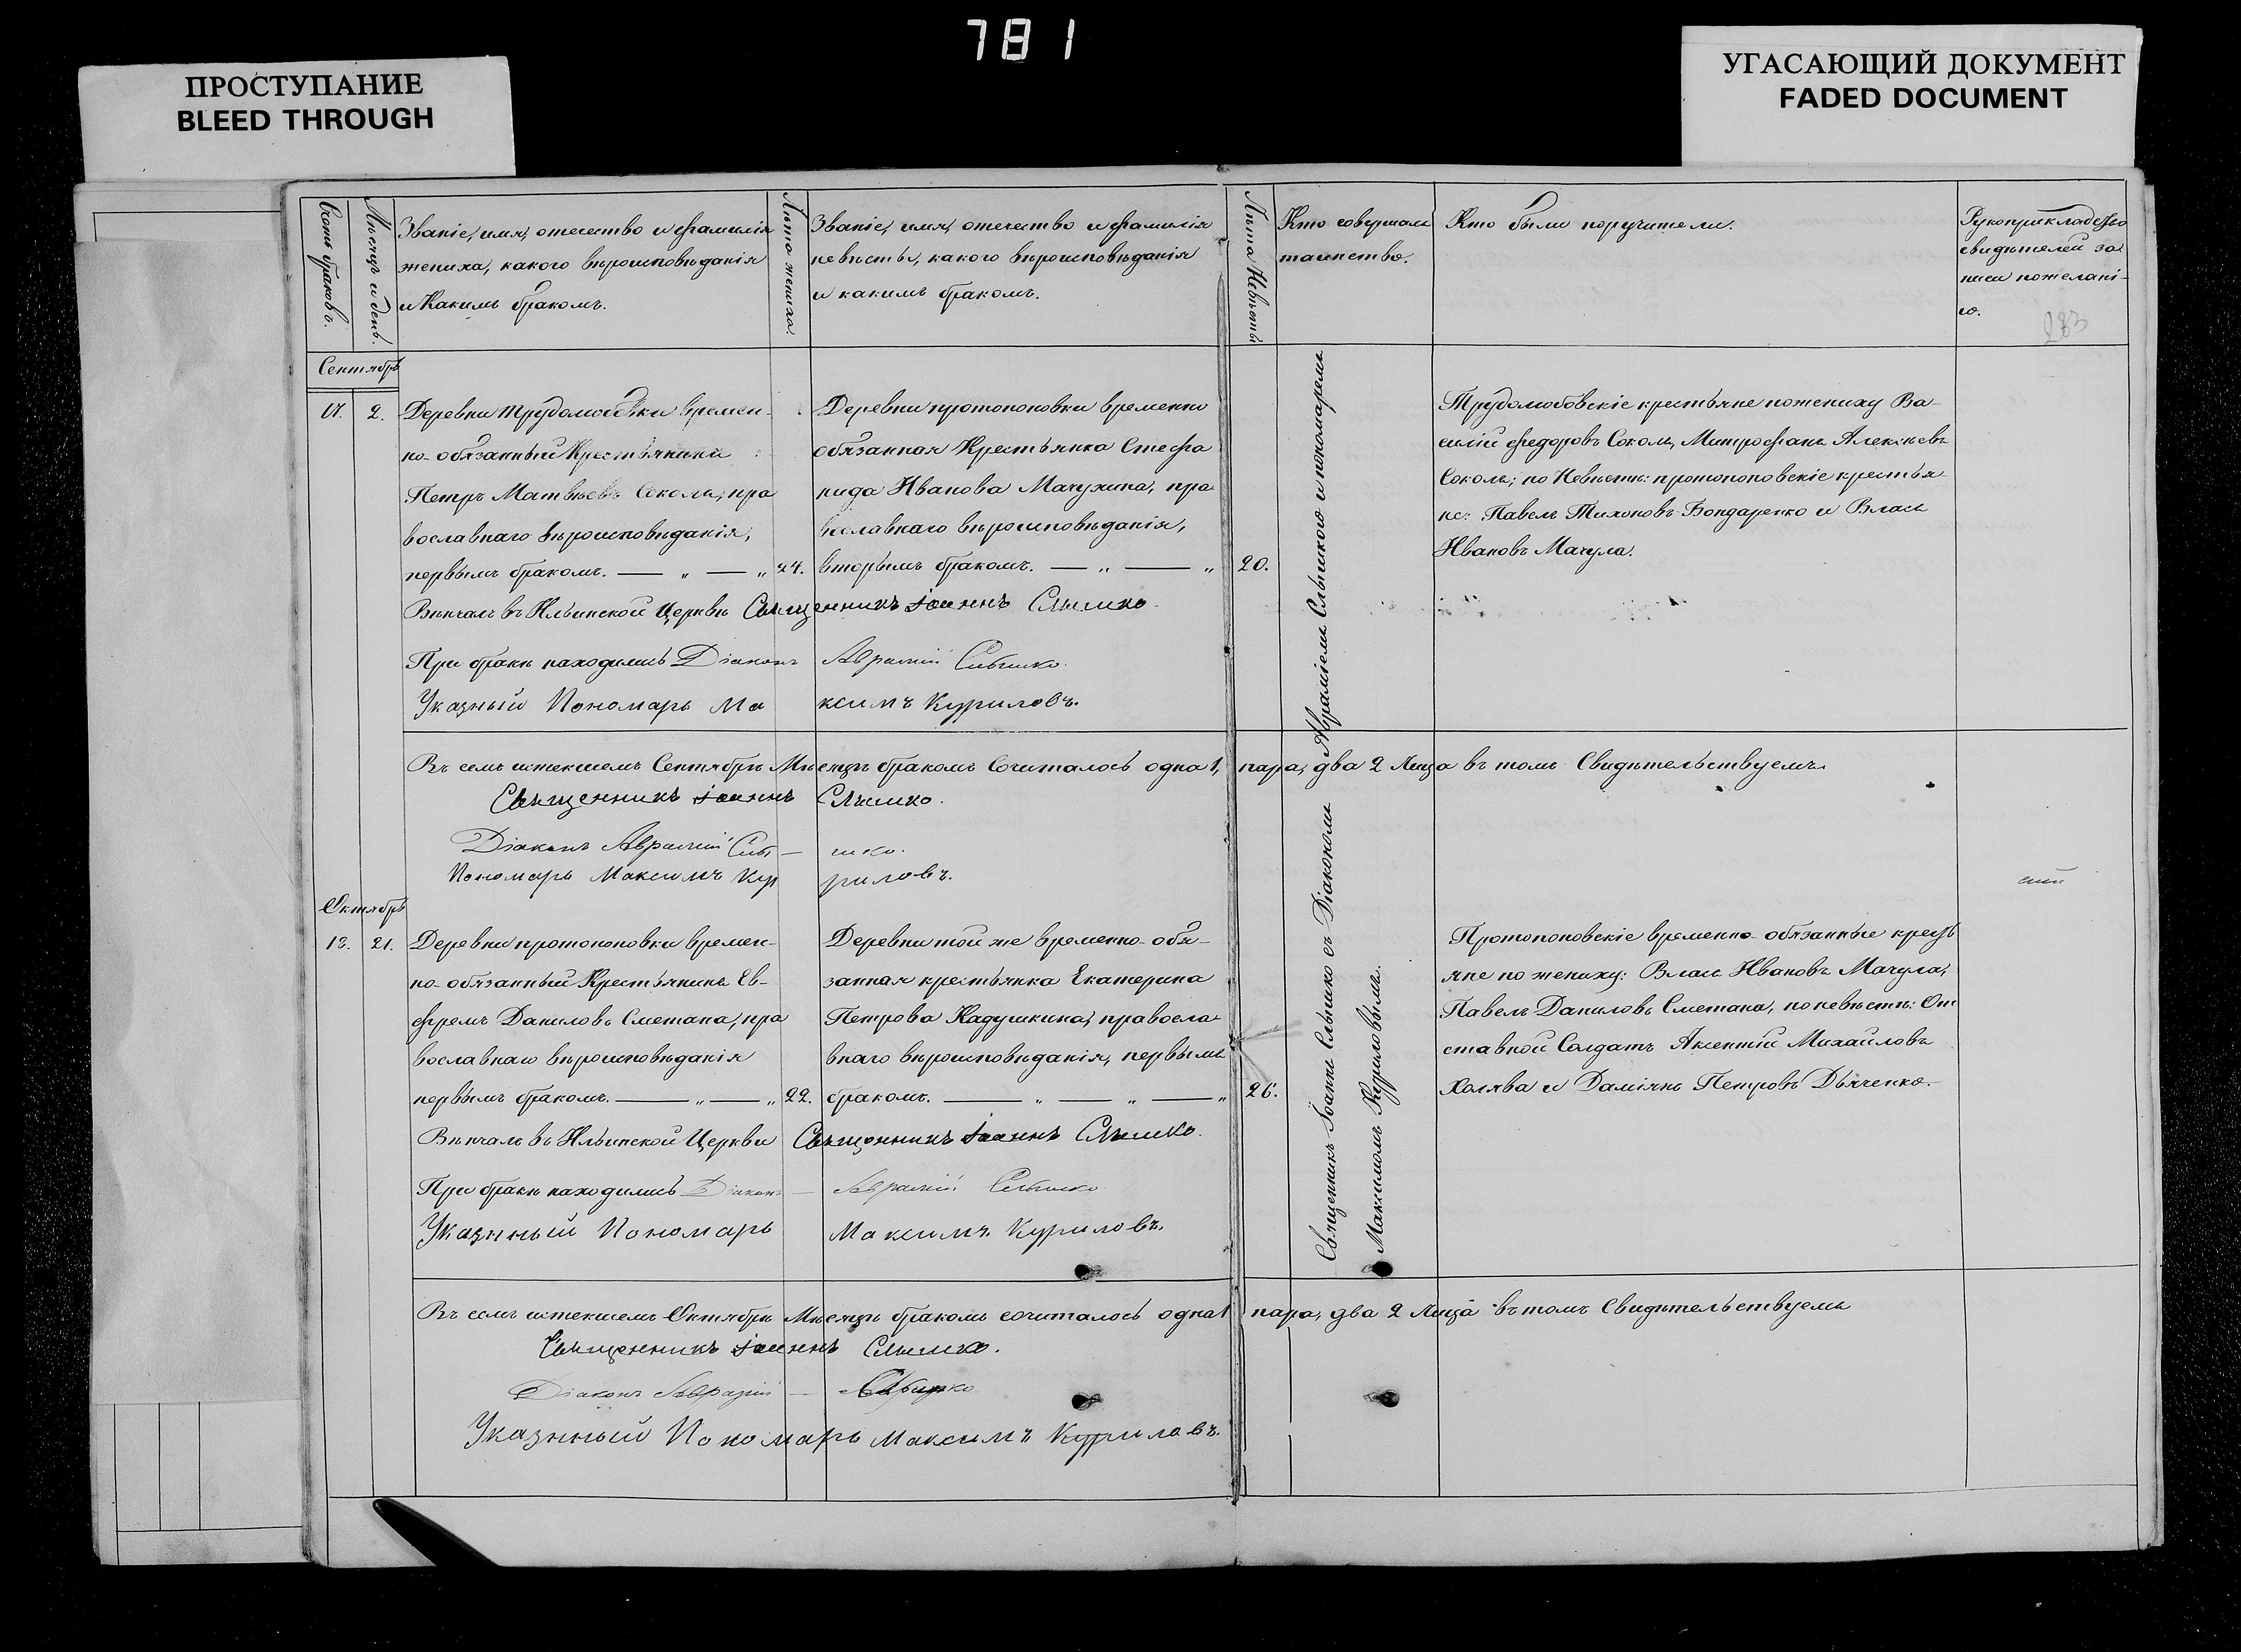 781
ПРОСТУПАНИЕ
BLEED THROUGH
УГАСАЮЩИЙ ДОКУМЕНТ
FADED DOCUMENT
Счетъ браковъ.
Мѣсяцъ и день.
Званіе, имя, отечество и фамилія
жениха, какого вѣроисповѣданія
и Какимъ бракомъ.
Лѣта жениха.
Званіе, имя, отечество и фамилія
невѣсты, какого вѣроисповѣданія
и какимъ бракомъ.
Лѣта Невѣсты
Кто совершалъ
таинство.
Кто были поручители.
Рукоприкладство
свидѣтелей за
писи по желані-
ю.
283
Сентябрь
2.
Деревни Трудолюбовки времен-
но-обязанный Крестьянинъ
Петръ Матвѣевъ Соколъ, пра
вославнаго вѣроисповѣданія,
первымъ бракомъ. — „ — „ 24.
Деревни протопоповки временно
обязанная Крестьянка Стефа
нида Иванова Мачухина, пра
вославнаго вѣроисповѣданія,
вторымъ бракомъ. — „ — „ 20.
Трудолюбовскіе крестьяне по жениху Ва-
силій Федоровъ Соколъ, Митрофанъ Алексѣевъ
Соколъ; по Невѣсте: протопоповскіе крестья-
не: Павелъ Тихоновъ Бондаренко и Власъ
Ивановъ Мачула.
Вѣнчалъ въ Ильинской Церквѣ Священникъ Іоаннъ Слышко.
При бракѣ находились Діаконъ Авраамій Слышко.
Указный Пономарь Максимъ Куриловъ.
Въ семъ истекшемъ Сентябрѣ Мѣсяцѣ бракомъ Сочиталось одна 1, пара, два 2 Лица въ томъ Свидѣтельствуемъ
Священникъ Іоаннъ Слышко.
Діаконъ Авраамій Слышко.
Пономарь Максимъ Куриловъ.
Священникъ Іоаннъ Слышко съ Діакономъ Авраміемъ Слышкою и пономаремъ
Максимомъ Куриловымъ.
Октябрь
21.
Деревни протопоповки времен-
но-обязанный Крестьянинъ Ев-
фремъ Даниловъ Сметана, пра
вославнаго вѣроисповѣданія
первымъ бракомъ. — „ — „ 22.
Деревни той же временно-обя-
занная крестьянка Екатерина
Петрова Кадушкина, правосла-
внаго вѣроисповѣданія, первымъ
бракомъ. — „ — „ — „ 26.
Протопоповскіе временно-обязанные крестъ
яне по жениху: Власъ Ивановъ Мачула,
Павелъ Даниловъ Сметана, по невѣсте: От
ставной Солдатъ Аксентій Михайловъ
Холява и Даміянъ Петровъ Дьяченко.
Вѣнчалъ въ Ильинской Церкви Священникъ Іоаннъ Слышко.
При бракѣ находились Діаконъ — Авраамій Слышко
Указнный Пономарь Максимъ Куриловъ.
Въ семъ истекшемъ Октябрѣ Мѣсяцѣ бракомъ сочиталось одна 1 пара, два 2 Лица въ томъ Свидѣтельствуемъ
Священникъ Іоаннъ Слышко.
Діаконъ Аврамій — Слышко
Указнный Пономарь Максимъ Куриловъ.